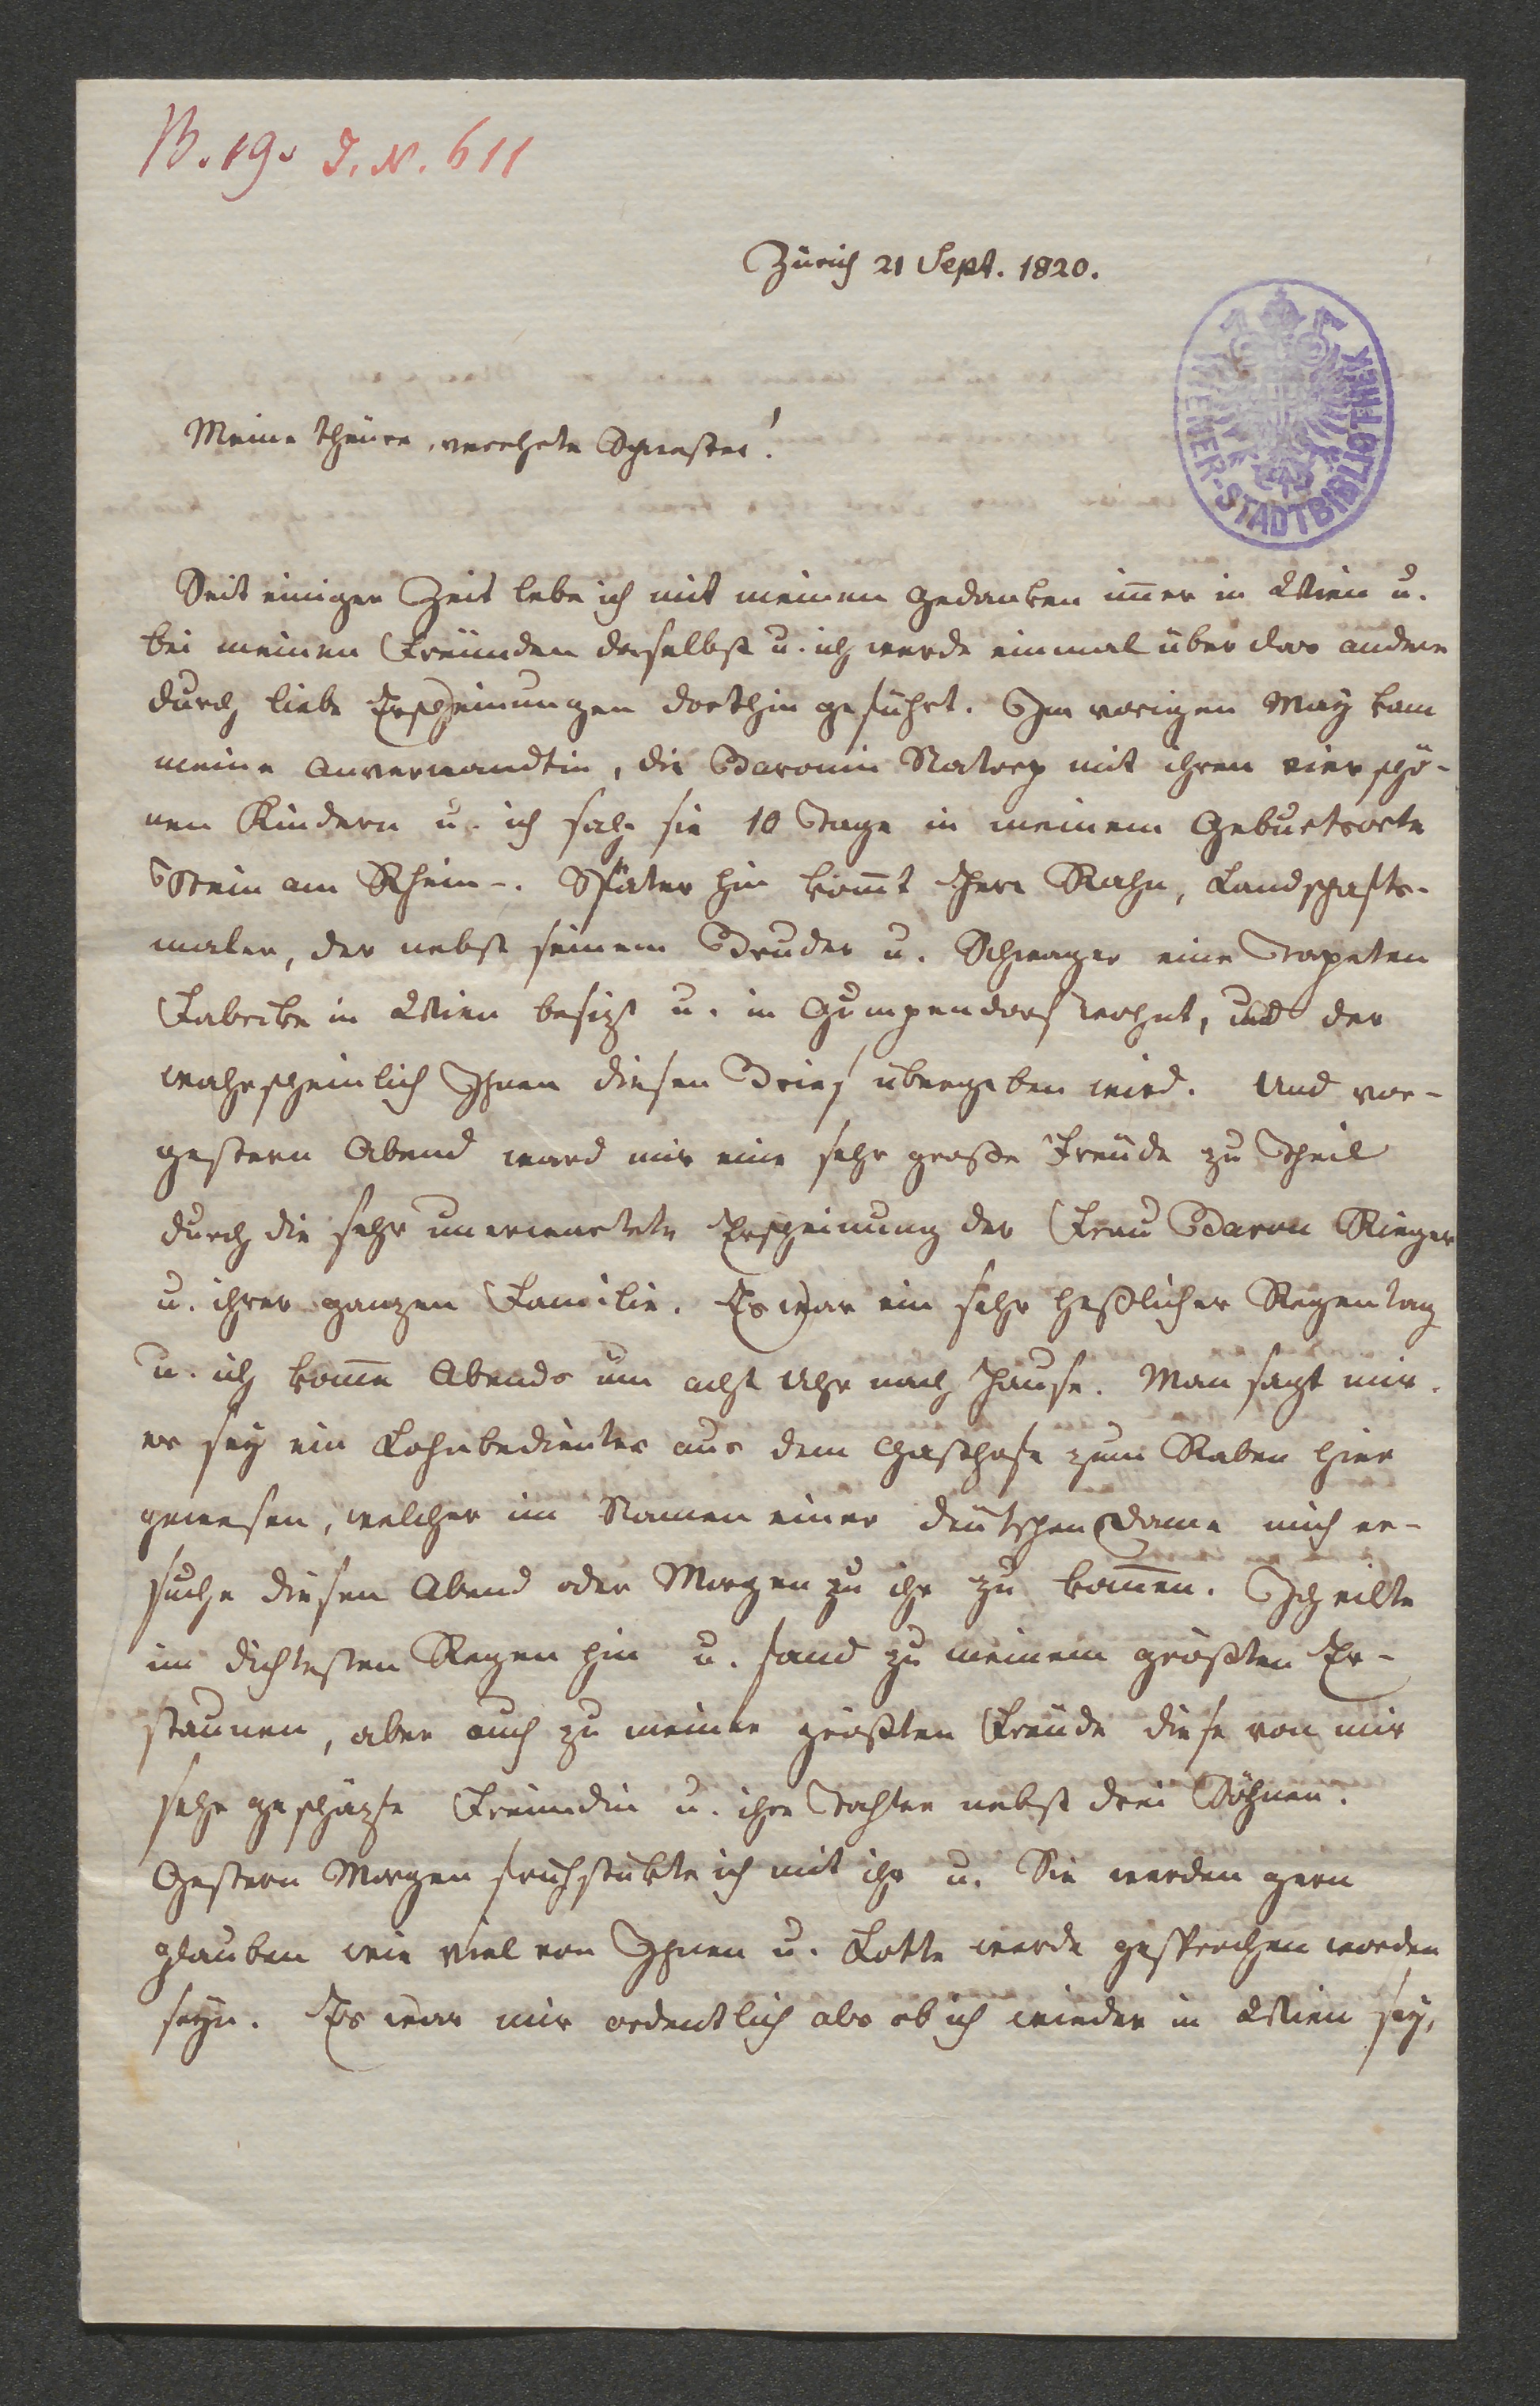 B. 19. J. N. 611
Zürich 21 Sept. 1820.
WIENER-STADTBIBLIOTHEK
Meine theure, verehrte Schwester!
Seit einiger Zeit lebe ich mit meinen Gedanken im̄er in Wien u.
bei meinen Freünden daselbst u. ich werde einmal über das andere
durch liebe Erscheinungen dorthin geführt. Im vorigen May kam
meine Anverwandtin, die Baronin Natorp mit ihren vier schö-
nen Kindern u. ich sah sie 10 Tage in meinem Geburtsorte
Stein am Rhein-. Später hin kom̄t Herr Rahn, Landschafts-
maler, der nebst seinem Bruder u. Schwager eine Tapeten
Fabrike in Wien besizt u. in Gumpendorf wohnt, und der
wahrscheinlich Ihnen diesen Brief übergeben wird. Und vor-
gestern Abend ward mir eine sehr große Freüde zu Theil
durch die sehr unerwartete Erscheinung der Frau Baron Rieger
u. ihrer ganzen Familie. Es war ein sehr heßlicher Regentag
u. ich kom̄e Abends um acht Uhr nach Hause. Man sagt mir,
es sey ein Lohnbedienter aus dem Gasthofe zum Raben hier
gewesen, welcher im Namen einer deutschen Dame mich er-
suche diesen Abend oder Morgen zu ihr zu kom̄en. Ich eilte
im dichtesten Regen hin u. fand zu meinem größten Er-
staunen, aber auch zu meiner größten Freüde diese von mir
sehr geschäzte Freündin u. ihre Tochter nebst drei Söhnen.
Gestern Morgen frühstükte ich mit ihr u. Sie werden gern
glauben wie viel von Ihnen u. Lotte werde gesprochen worden
seyn. Es war mir ordentlich als ob ich wieder in Wien sey,